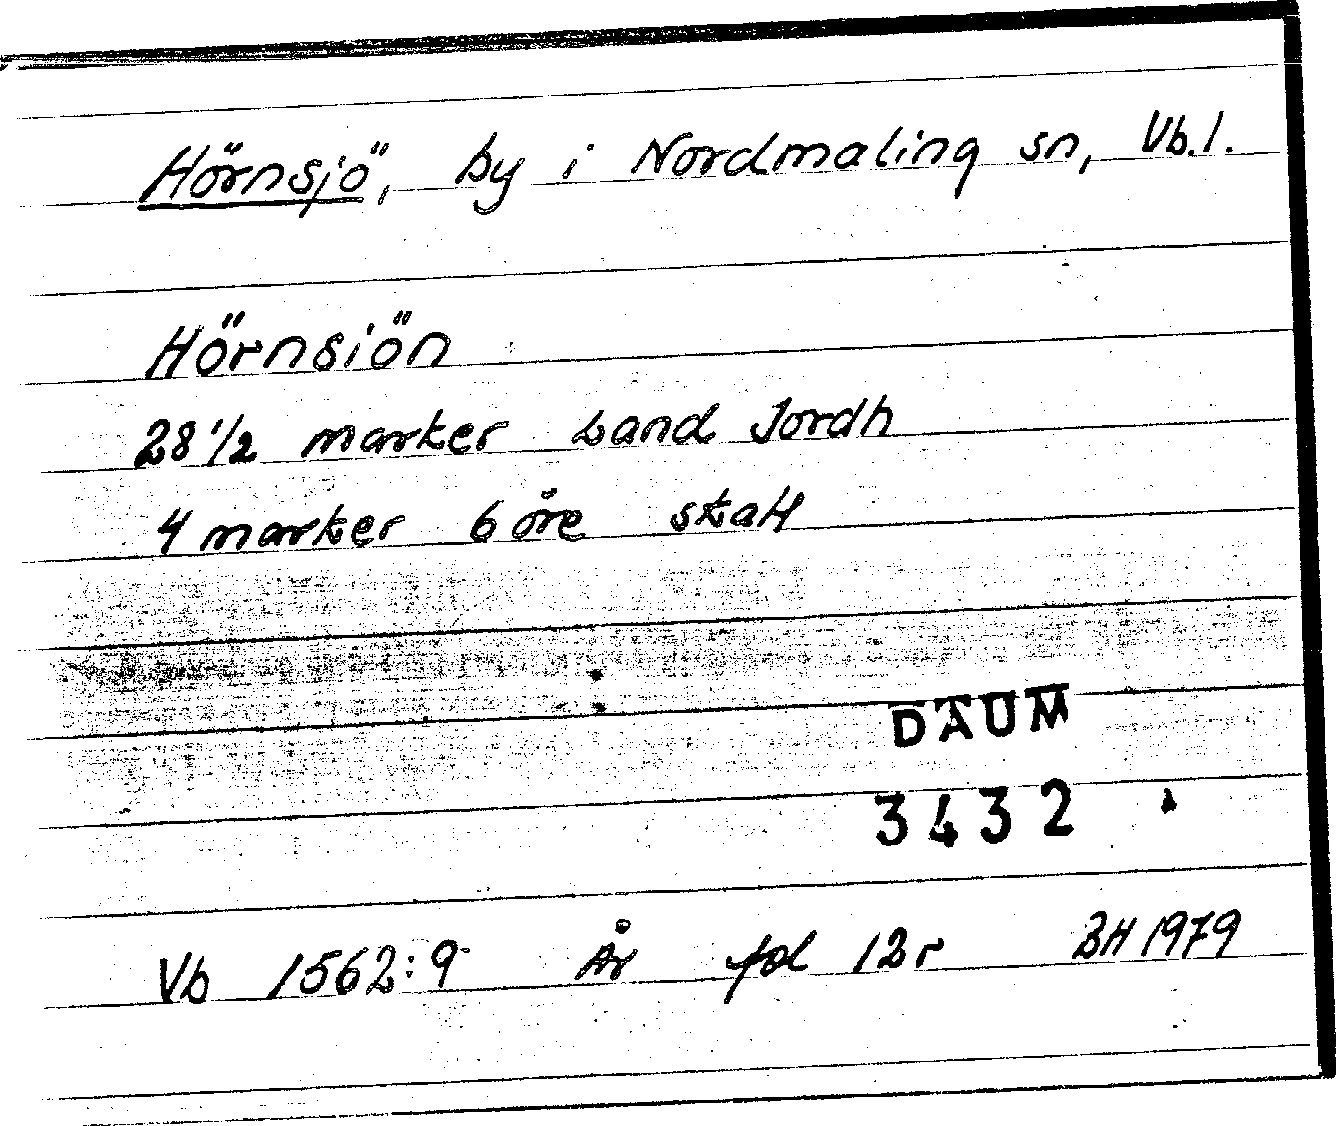 Hörnsjö, by i Nordmaling sn, Vb.l.
Hörnsiön
28 1/2 marker Land Jordh
4 marker 6 öre skatt
DAUM
3432
Vb 1562:9 År fol 12r BH 1979